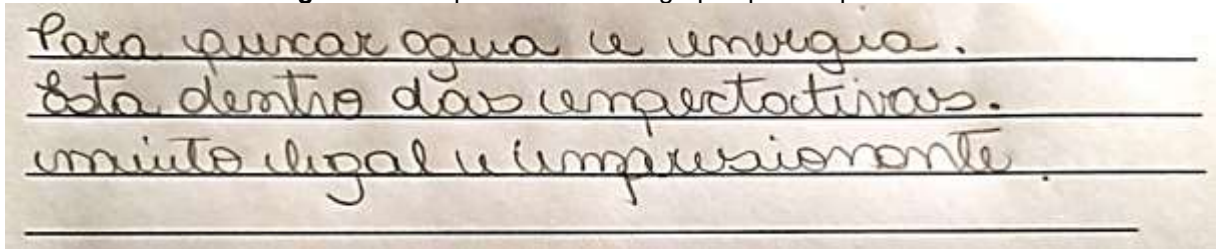 Para puxar agua e energia.
Esta dentro das expectativas.
muito legal e impressionante.